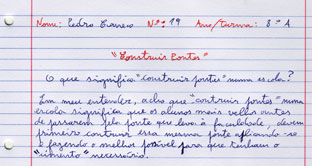 Nome: Pedro Correio Nº: 19 Ano/Turma: 8º A
"Construir Pontes"
O que significa "construir pontes" numa escola?
Em meu entender, acho que "contruir pontes" numa
escola significa que os alunos mais velhos antes
de passarem pela ponte que leva à faculdade, devem
primeiro contruir essa mesma ponte aplicando-se
e fazendo o melhor possível para que tenham o
"cimento" necessário.